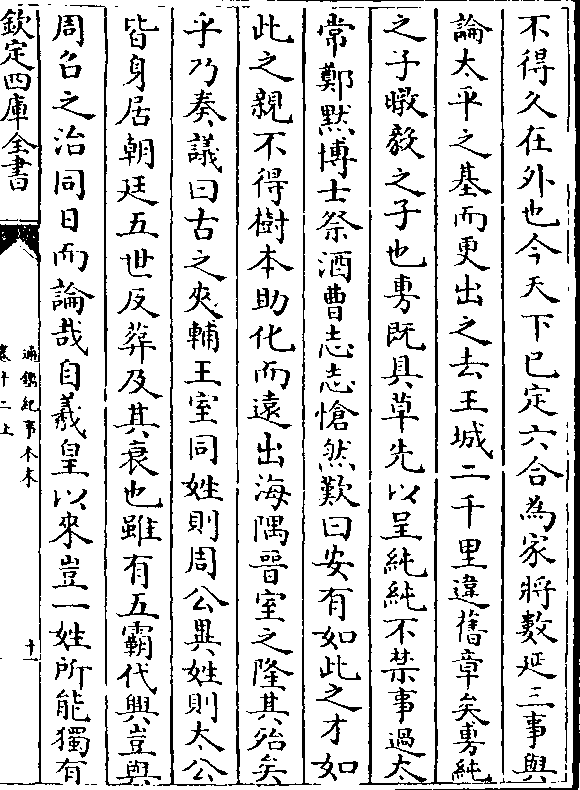 不得久在外也今天下已定六合為家將數延三事與
論太平之基而更出之去王城二千里違舊章矣旉純
之子暾毅之子也旉既具草先以呈純純不禁事過太
常鄭默博士祭酒曹志志愴然歎曰安有如此之才如
此之親不得樹本助化而遠出海隅晉室之隆其殆矣
乎乃奏議曰古之夾輔王室同姓則周公異姓則太公
皆身居朝廷五世反葬及其衰也雖有五霸代興豈與
周召之治同日而論哉自羲皇以來豈一姓所能獨有
欽定四庫全書
通鑑紀事本末
卷十二上
十一